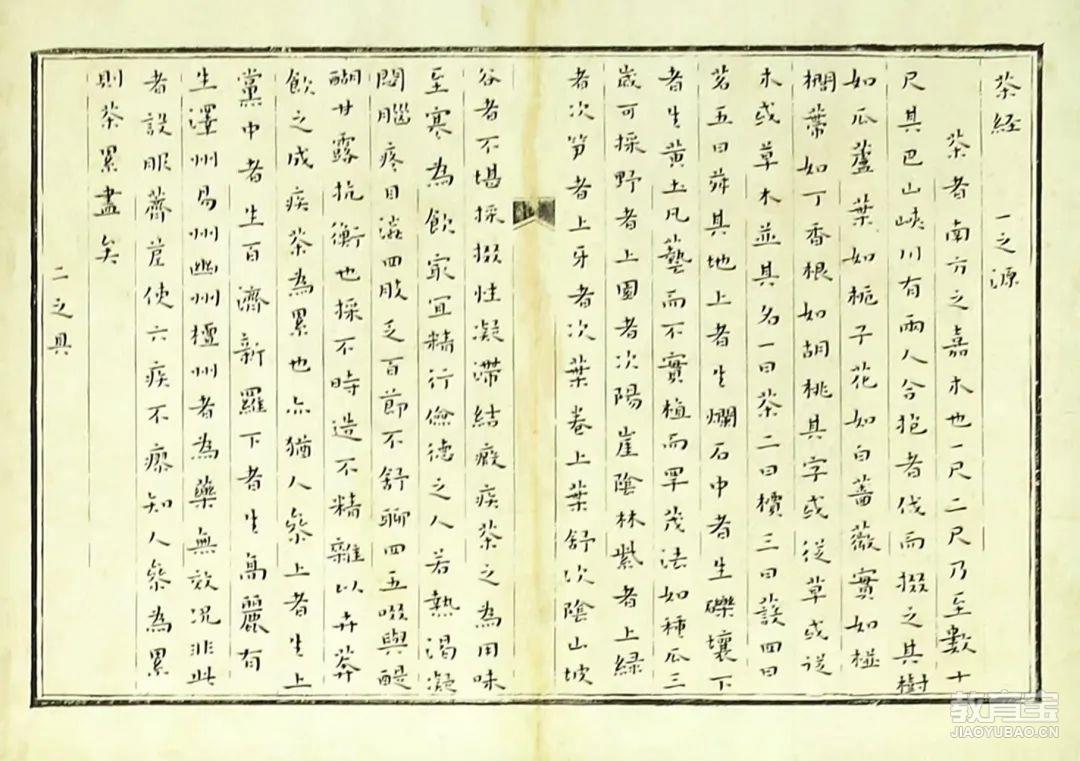 茶経　一之源
茶者南方之嘉木也一尺二尺乃至數十
尺其巴山峽川有兩人合抱者伐而掇之其樹
如瓜蘆葉如梔子花如白薔薇實如栟
櫚葉如丁香根如胡桃其字或從草或從
木或草木並其名一曰茶二曰檟三曰蔎四曰
茗五曰荈其地上者生爛石中者生礫壤下
者生黃土凡藝而不實植而罕茂法如種瓜三
歲可採野者上園者次陽崖陰林紫者上緑
者次笋者上牙者次葉卷上葉舒次陰山坡
谷者不堪採掇性凝滯結瘕疾茶之為用味
至寒為飲最宜精行儉德之人若熱渴凝
悶腦疼目澁四肢乏百節不舒聊四五啜與醍
醐甘露抗衡也採不時造不精雜以卉莽
飲之成疾茶為累也亦猶人參上者生上
黨中者生百濟新羅下者生高麗有
生澤州易州幽州檀州者為藥無效況非此
者設服薺苨使六疾不瘳知人參為累
則茶累盡矣
二之具
教育宝
JIAOYUBAO.CN